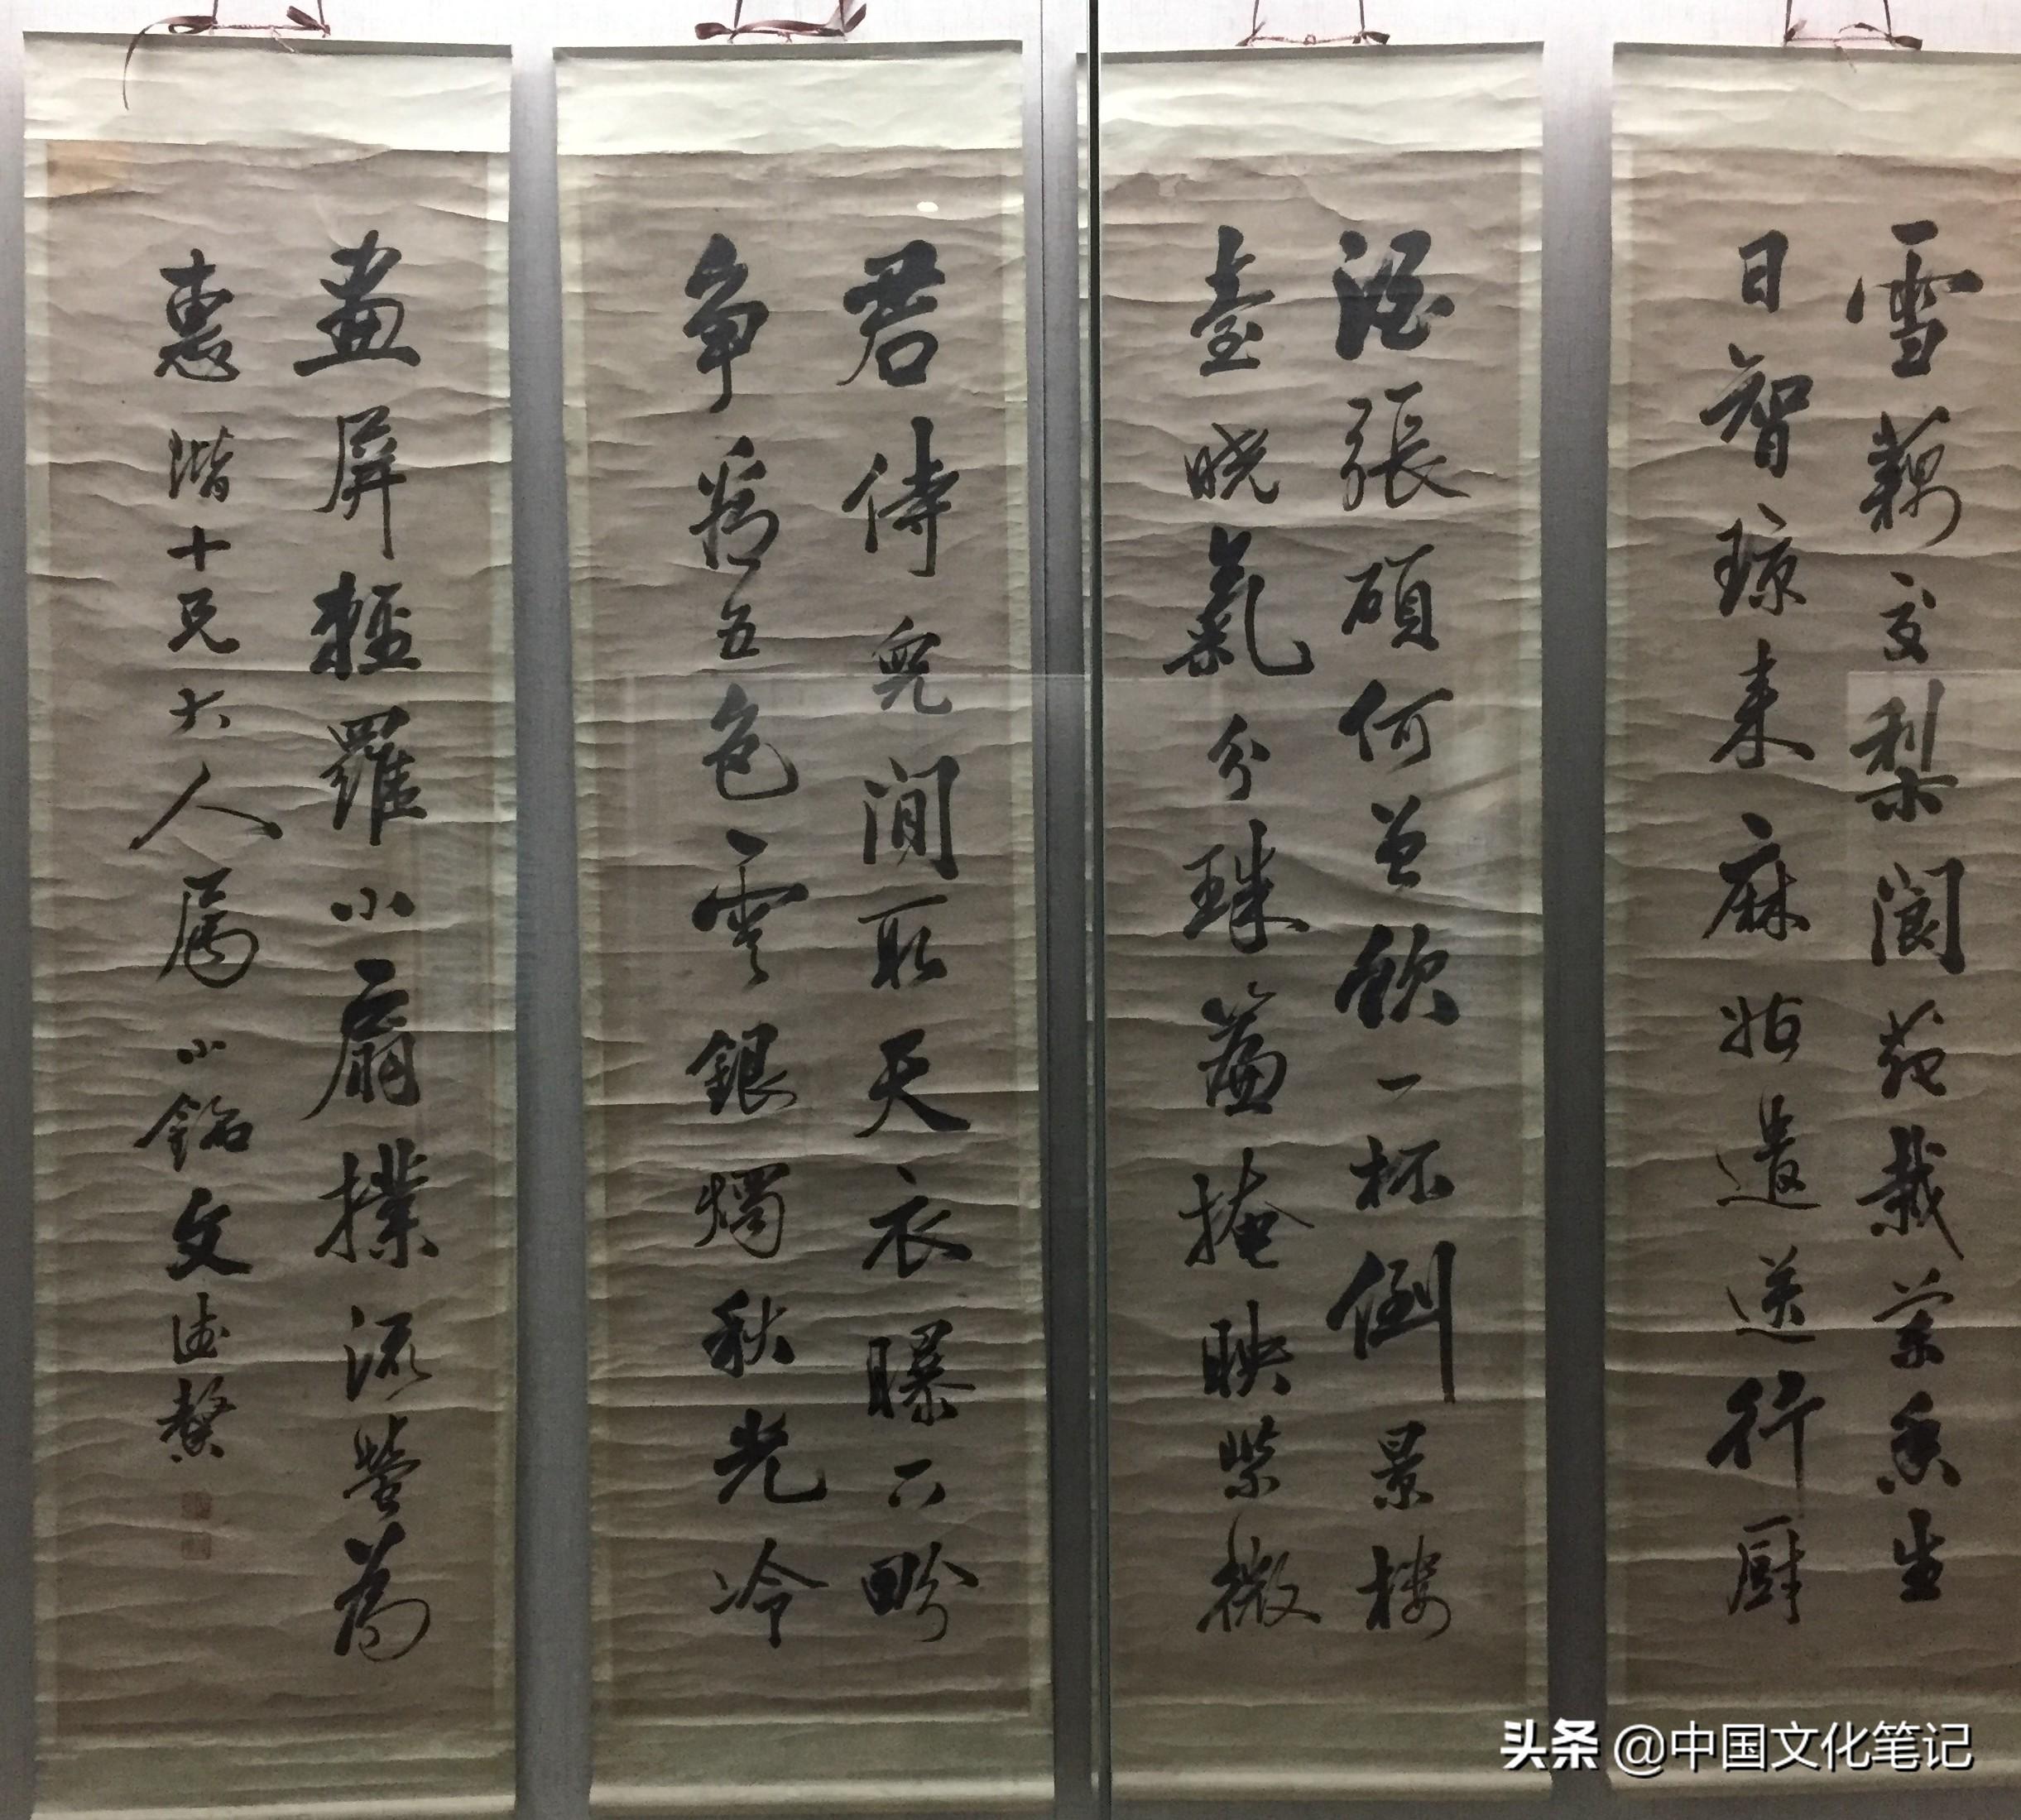 雪藕交梨閬苑栽蘭香生
日智瓊来麻姑遣送行厨
酒張碩何曾飲一杯倒景樓
臺曉氣分珠簾掩映紫微
君侍兒閒取天衣曝下畍
争看五色雲銀燭秋光冷
畫屏輕羅小扇撲流螢為
惠階十兄大人属小銘文
头条 @中国文化笔记